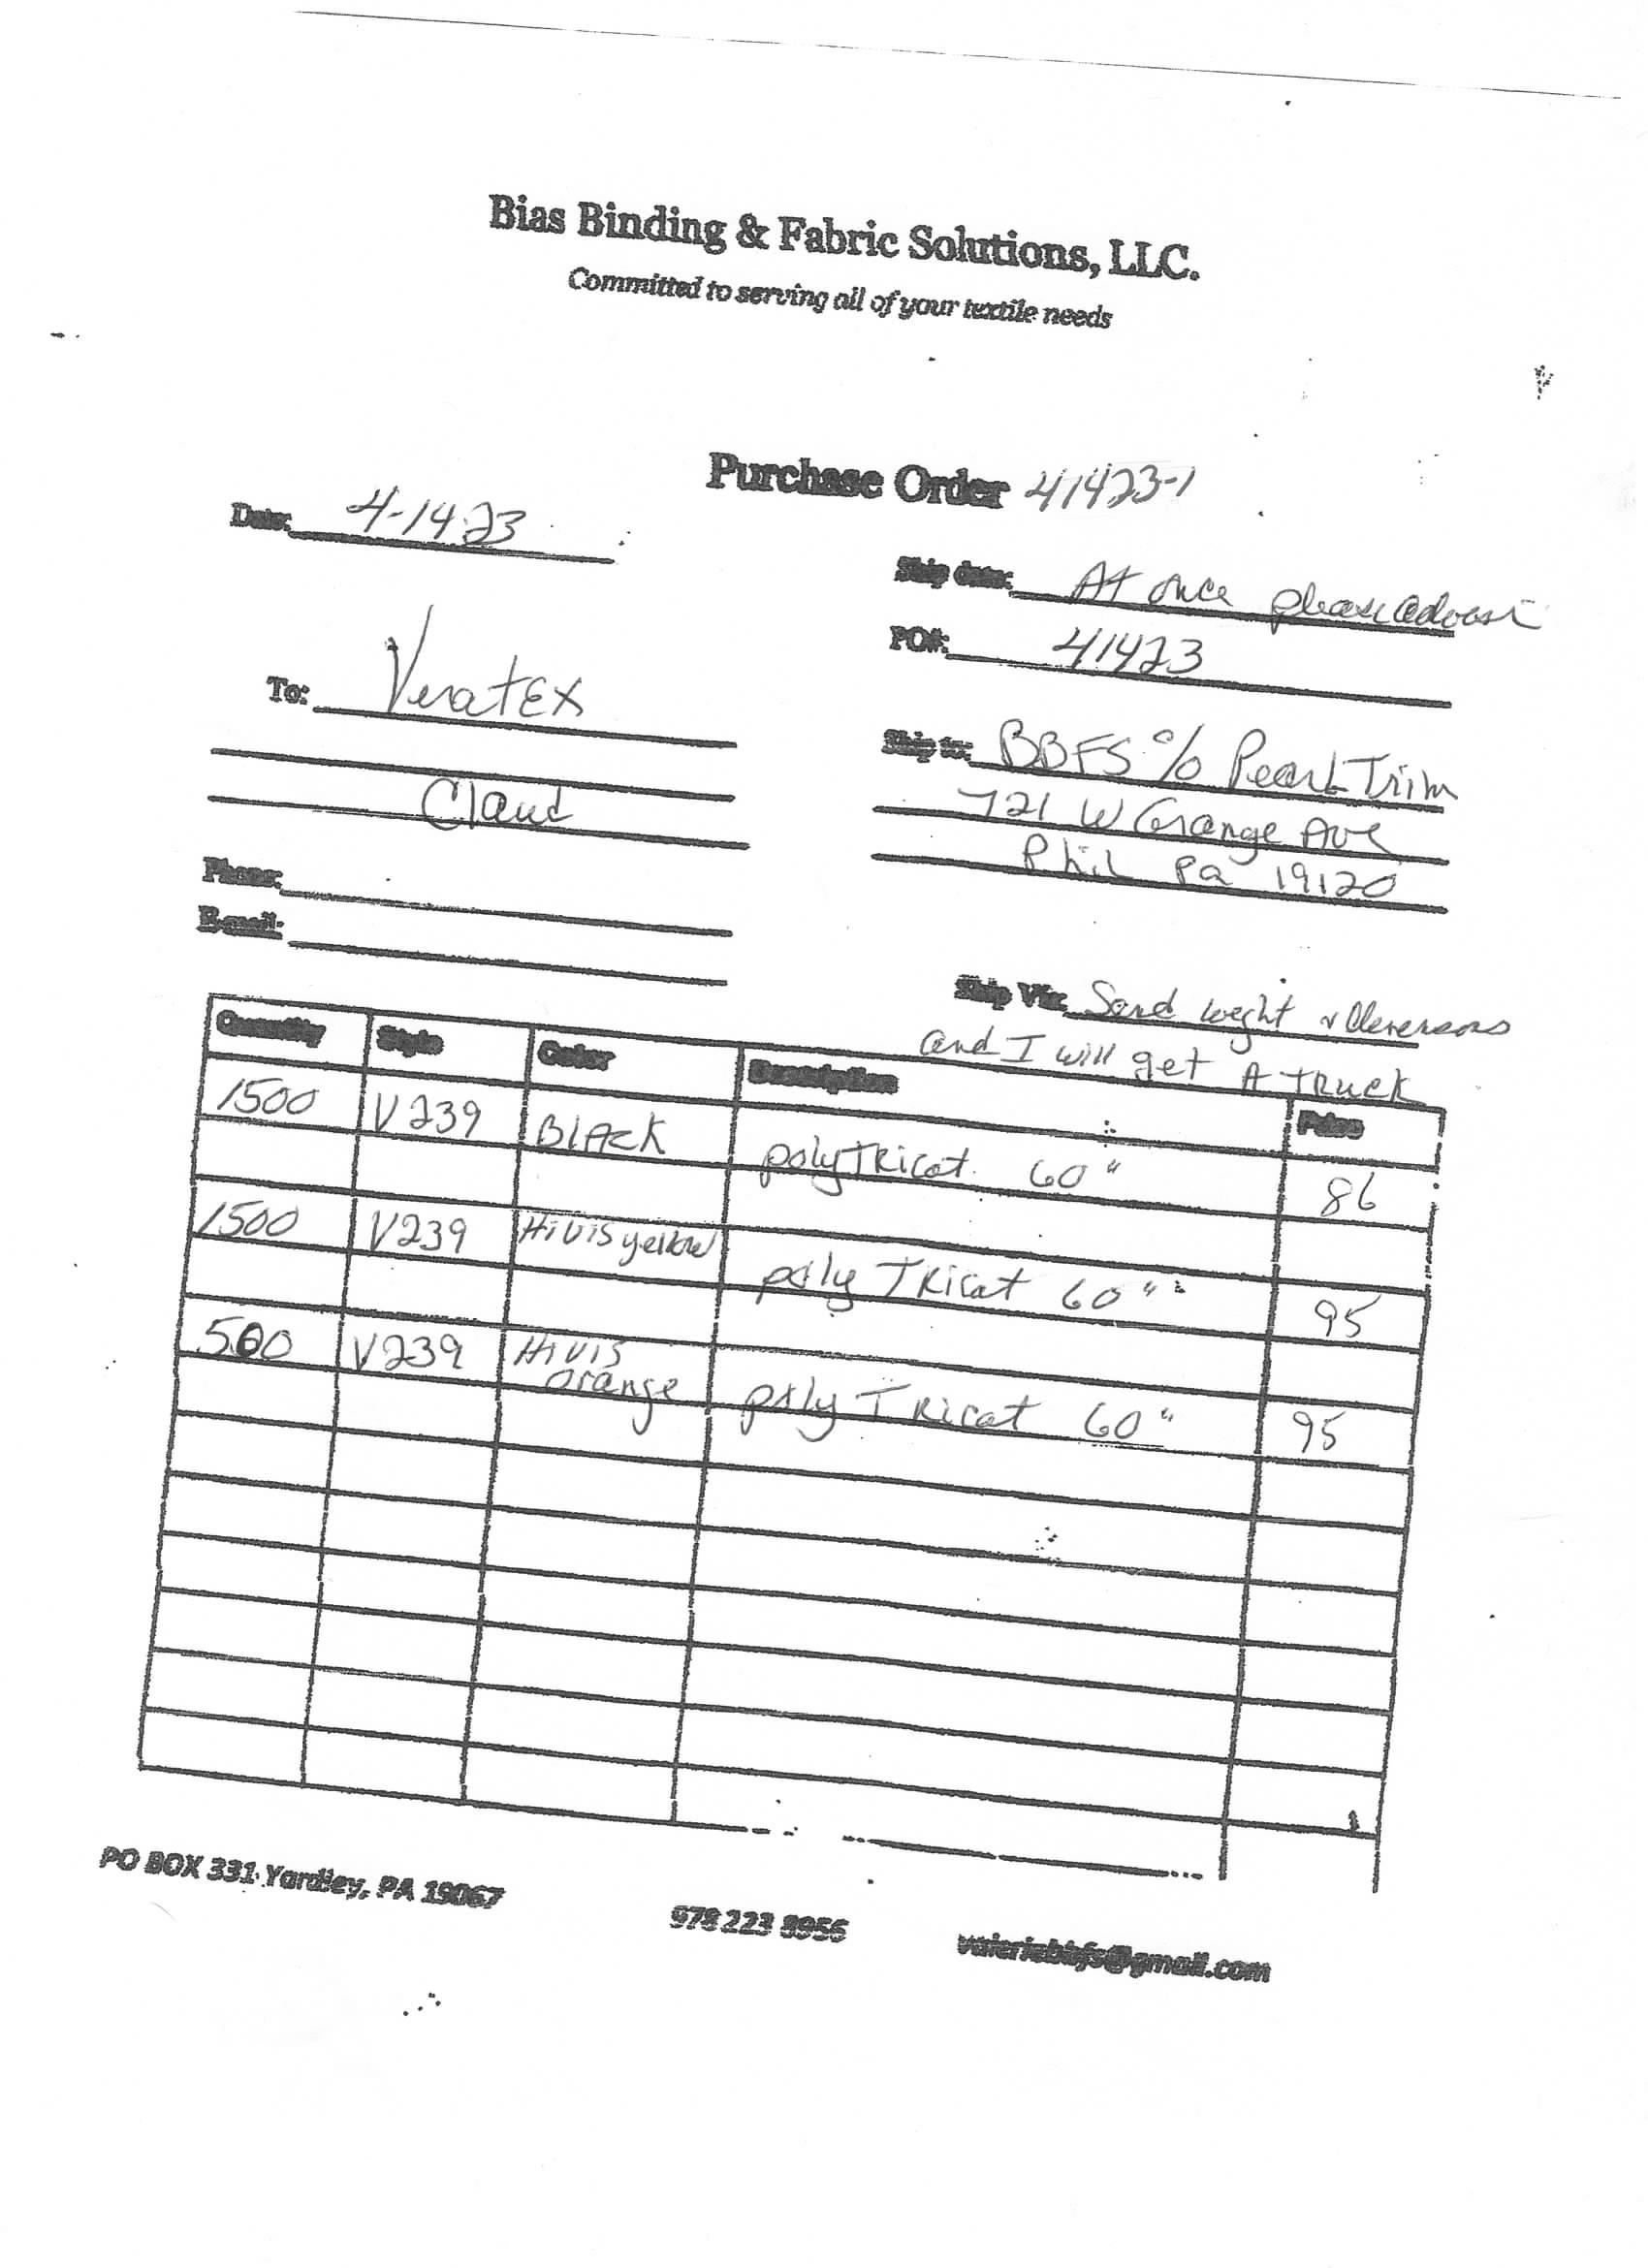 Bias Binding & Fabric Solutions, LLC.
Committed to serving all of your textile needs
Purchase Order 41423-1
Date: 4-14-23
Ship date: At once please advise
PO#: 41423
To: VeratEX
Claud
Ship to: BBFS c/o Pearl Trim
721 W Grange Ave
Phil Pa 19120
Phone:
E-mail:
Ship Via: Send weght &
and I will get A TRUCK
Quantity Style Color Description Price
1500 V239 BLACK poly TRicot 60" 86
1500 V239 Hi Vis yellow poly TRicot 60" 95
500 V239 Hi Vis orange poly TRicot 60" 95
PO BOX 331 Yardley, PA 19067
978 223 8956
valeriebbfs@gmail.com